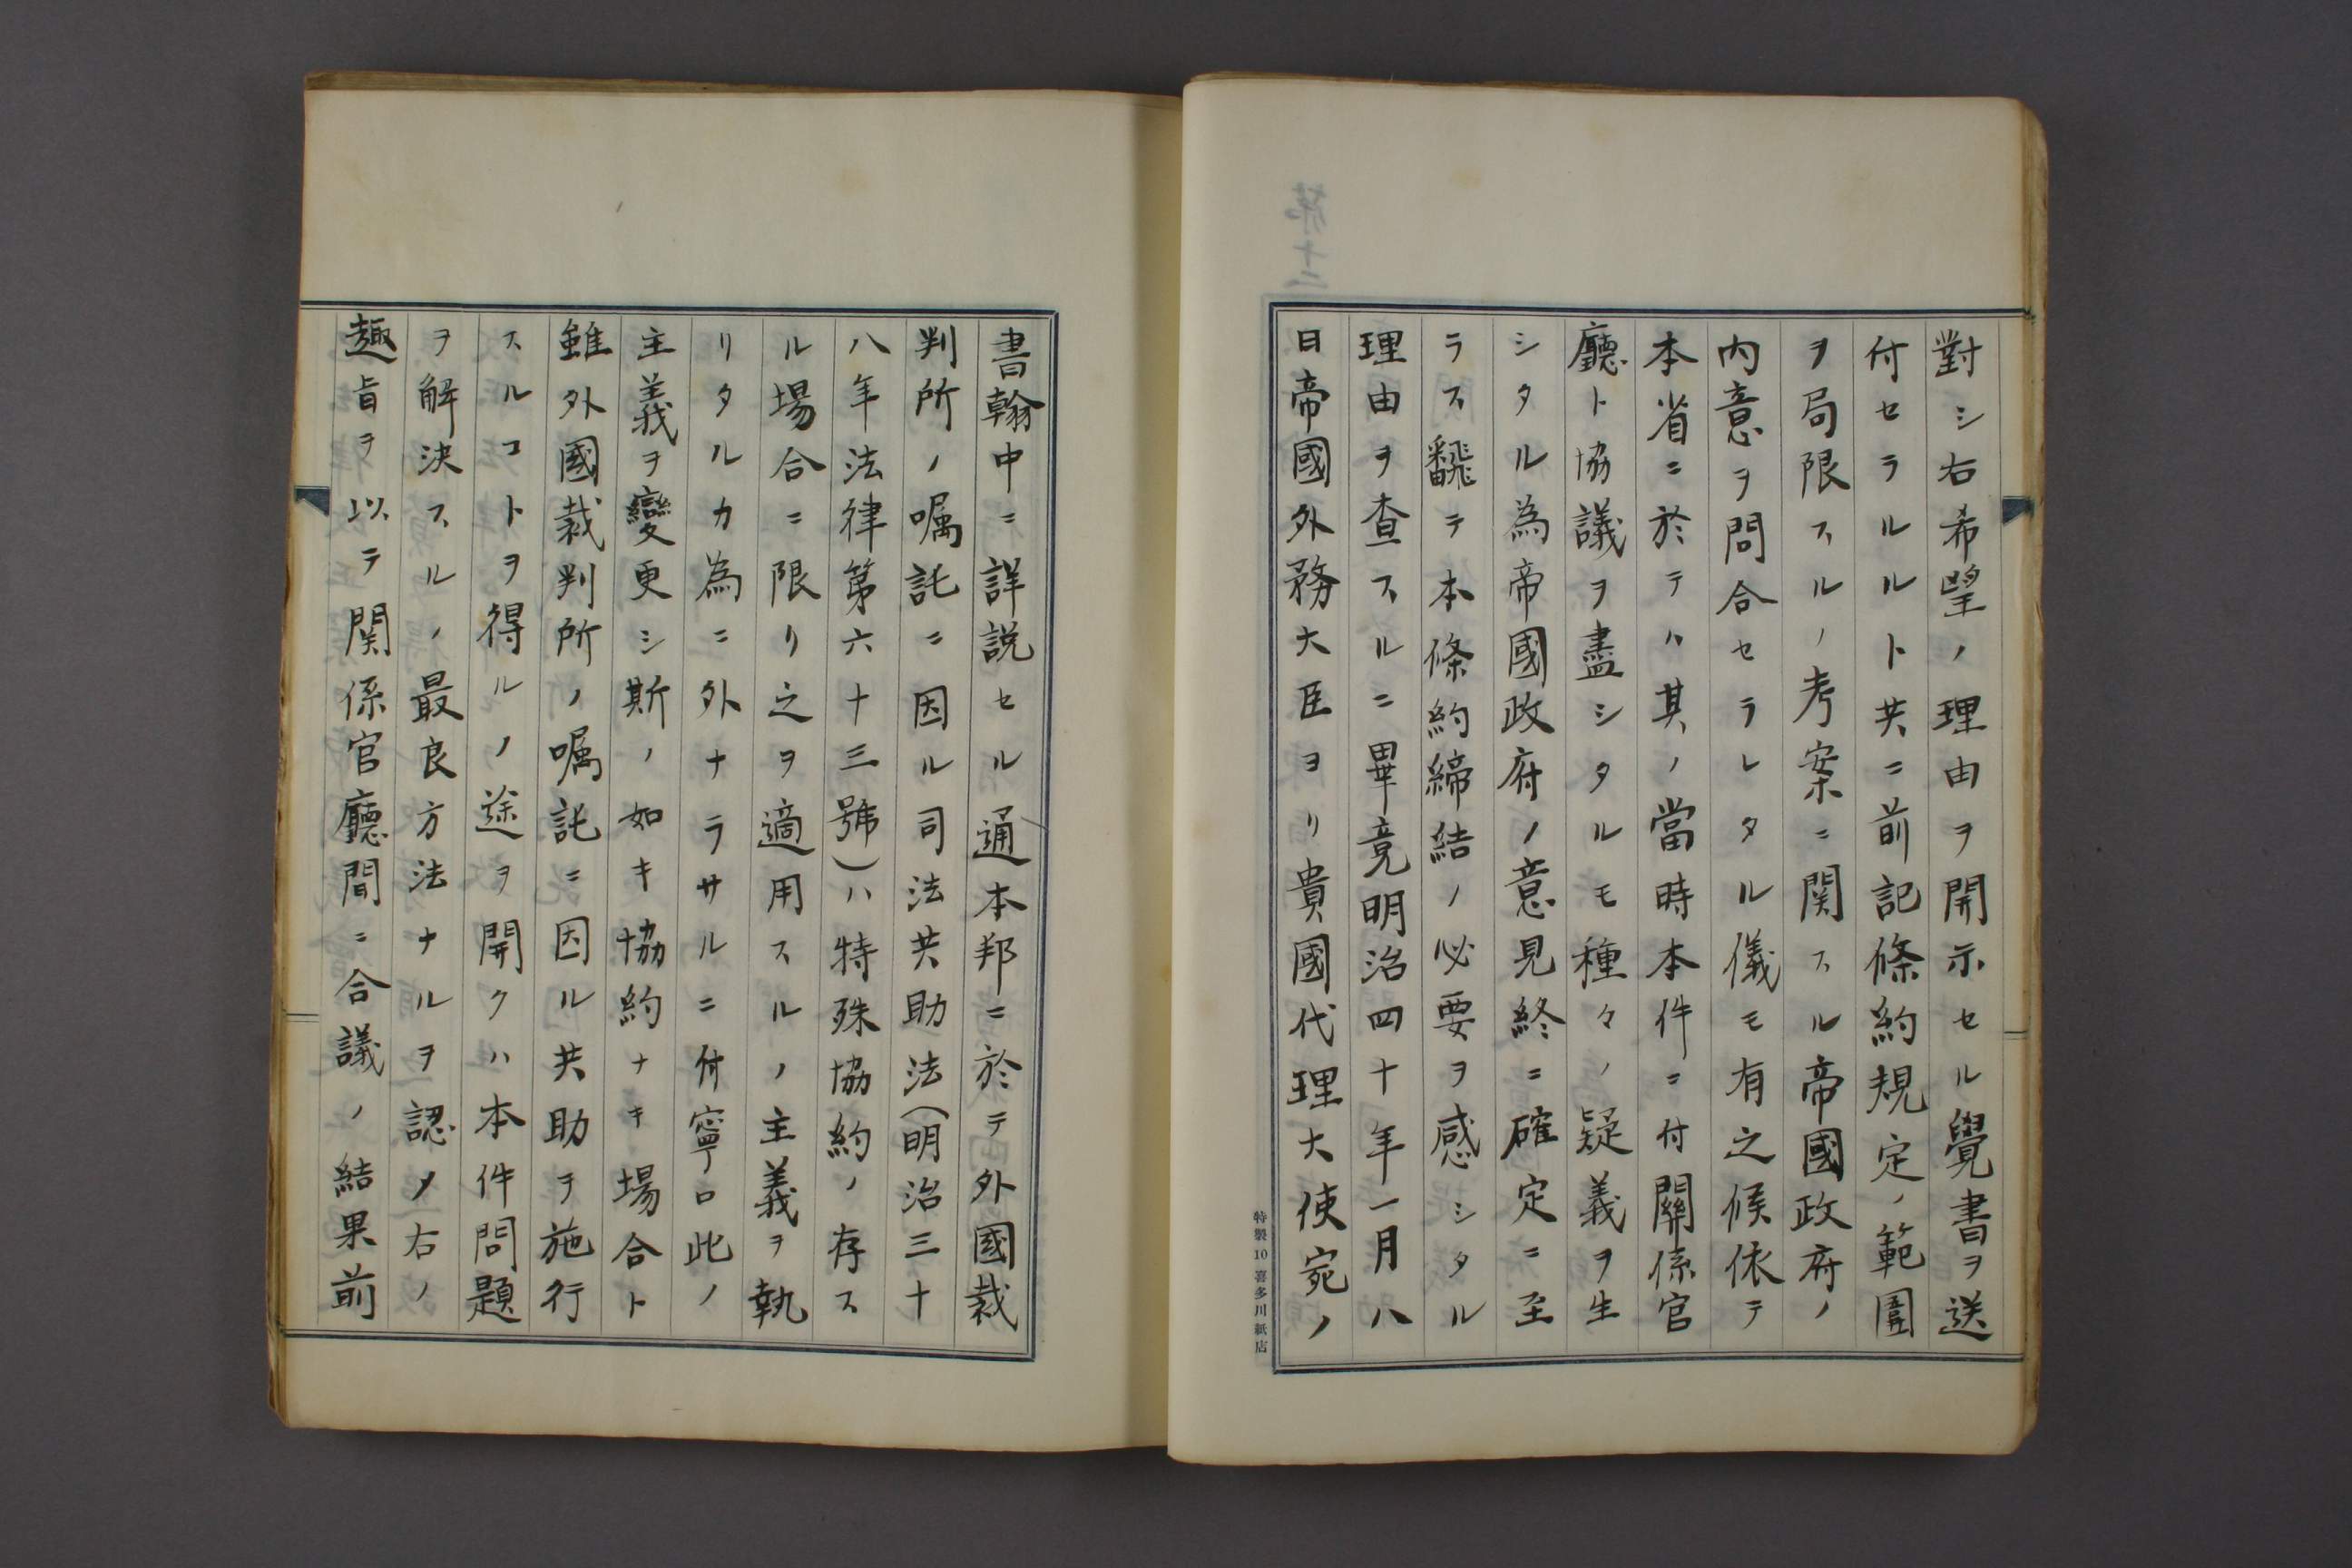 對シ右希望ノ理由ヲ開示セル覺書ヲ送
付セラルルト共ニ前記條約規定ノ範圍
ヲ局限スルノ考案ニ関スル帝國政府ノ
内意ヲ問合セラレタル儀モ有之候依テ
本省ニ於テハ其ノ當時本件ニ付關係官
廳ト協議ヲ盡シタルモ種々ノ疑義ヲ生
シタル為帝國政府ノ意見終ニ確定ニ至
ラス飜テ本條約締結ノ必要ヲ感シタル
理由ヲ査スルニ畢竟明治四十年一月八
日帝國外務大臣ヨリ貴國代理大使宛ノ
特製10喜多川紙店
書翰中ニ詳説セル通本邦ニ於テ外國裁
判所ノ嘱託ニ因ル司法共助法(明治三十
八年法律第六十三號)ハ特殊協約ノ存ス
ル場合ニ限リ之ヲ適用スルノ主義ヲ執
リタルカ為ニ外ナラサルニ付寧ロ此ノ
主義ヲ變更シ斯ノ如キ協約ナキ場合ト
雖外國裁判所ノ嘱託ニ因ル共助ヲ施行
スルコトヲ得ルノ途ヲ開クハ本件問題
ヲ解決スルノ最良方法ナルヲ認メ右ノ
趣旨ヲ以テ関係官廳間ニ合議ノ結果前